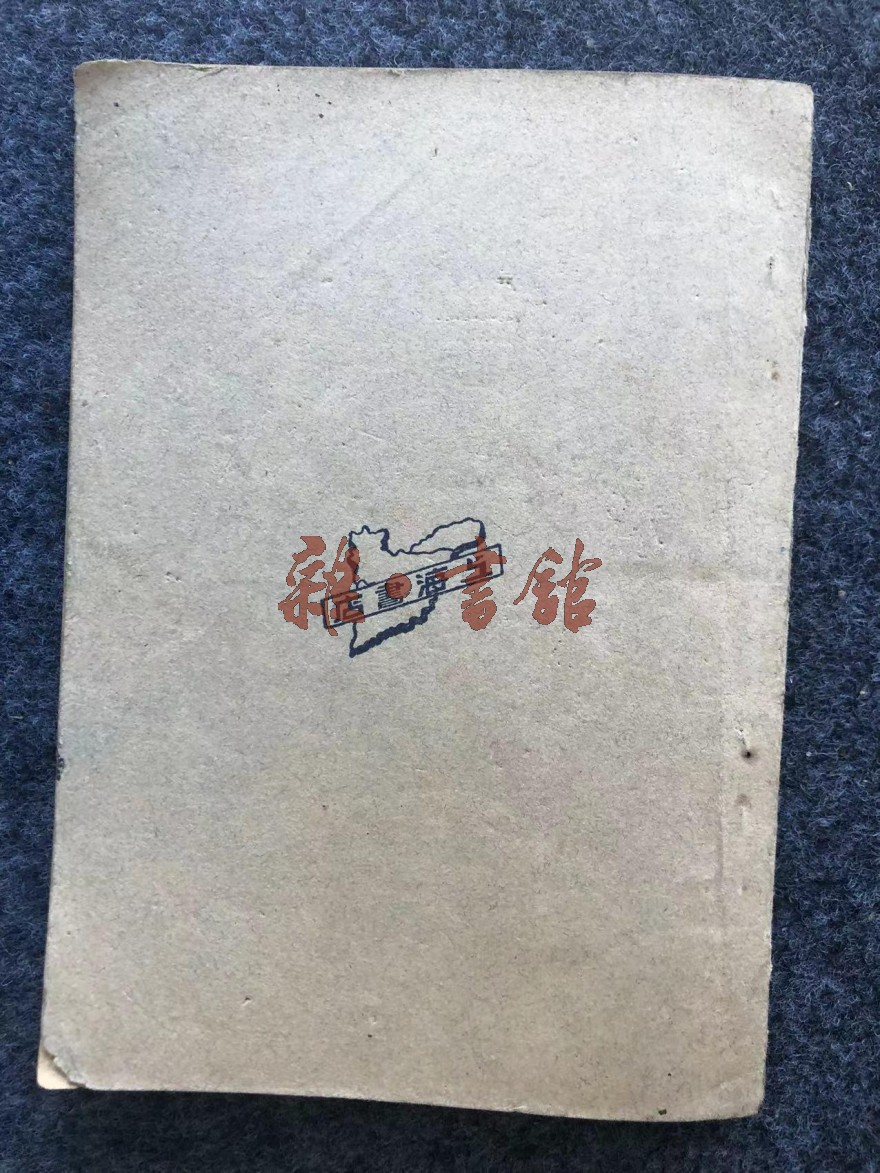 雜·書館
海書店